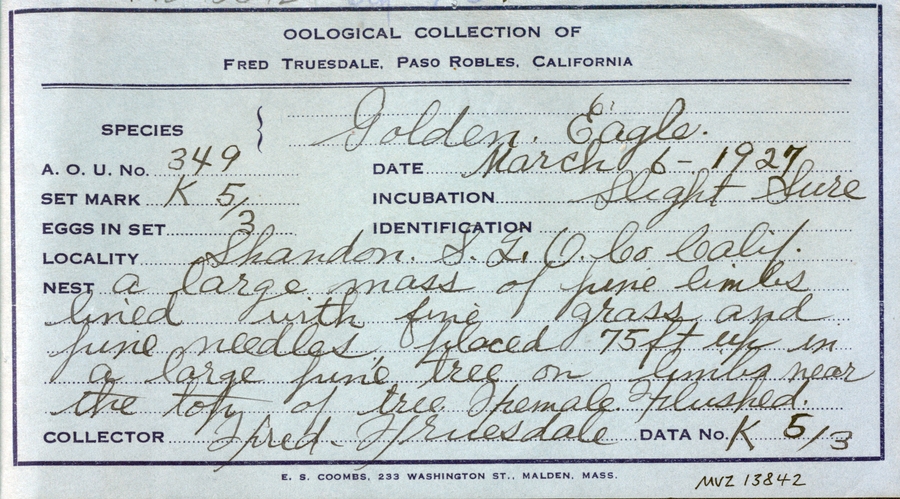 OOLOGICAL COLLECTION OF
FRED TRUESDALE, PASO ROBLES, CALIFORNIA
SPECIES } Golden. Eagle.
A. O. U. No. 349 DATE March 6-1927
SET MARK K 5/3 INCUBATION Slight Sure
EGGS IN SET IDENTIFICATION
LOCALITY Shandon. S. L. O. Co Calif.
NEST a large mass of pine limbs
lined with fine grass and
pine needles, placed 75 ft up in
a large pine tree on limbs near
the top of tree Female Flushed.
COLLECTOR Fred. Truesdale DATA No. K 5/3
E. S. COOMBS, 233 WASHINGTON ST., MALDEN, MASS.
MVZ 13842